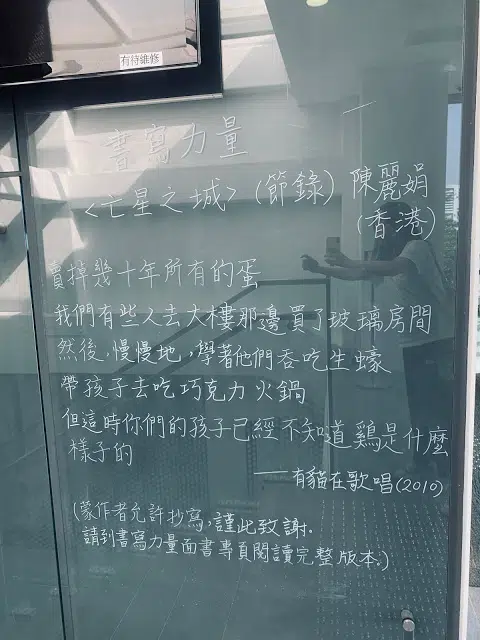 有待維修
書寫力量
<亡星之城> (節錄) 陳麗娟
(香港)
賣掉幾十年所有的蛋
我們有些人去大樓那邊買了玻璃房間
然後，慢慢地，學著他們吞吃生蠔
帶孩子去吃巧克力火鍋
但這時你們的孩子已經不知道鷄是什麼
樣子的
——有貓在歌唱(2010)
(蒙作者允許抄寫，謹此致謝.
請到書寫力量面書專頁閱讀完整版本.)